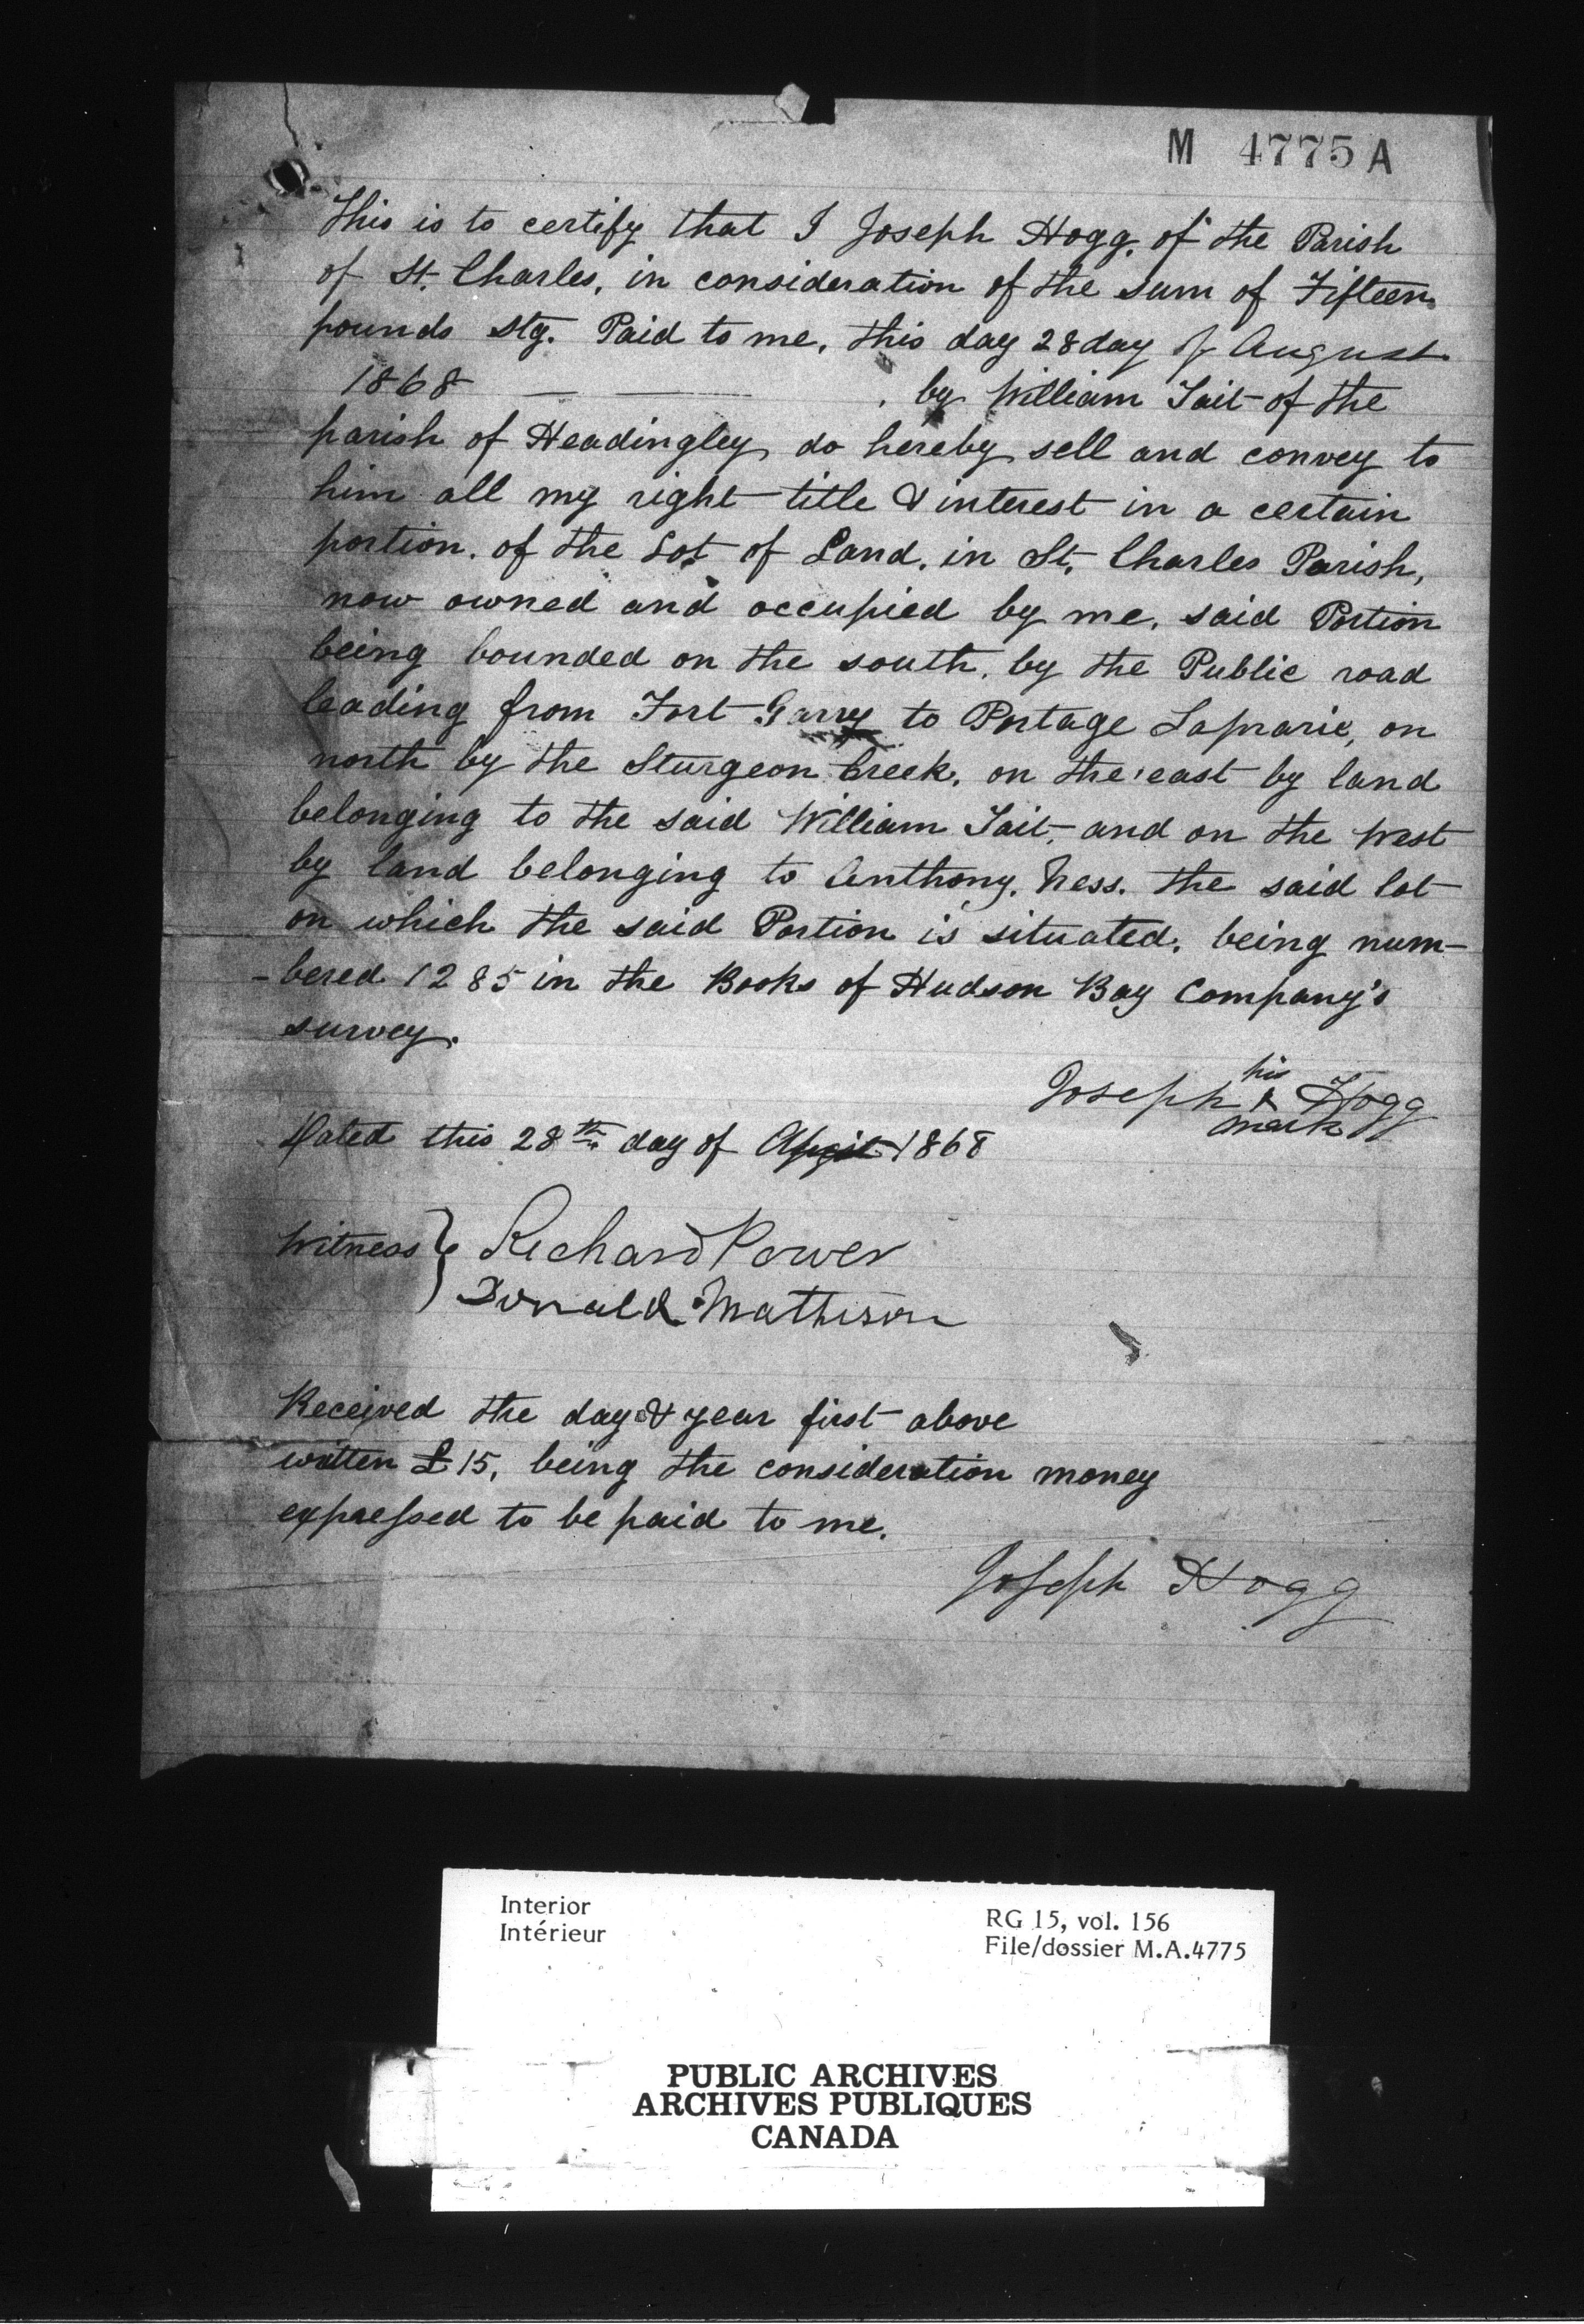 M 4775 A
This is to certify that I Joseph Hogg, of the Parish
of St. Charles, in consideration of the sum of Fifteen
pounds Stg. Paid to me, this day 28 day of August
1868 — — , by William Tait of the
parish of Headingley, do hereby sell and convey to
him all my right title & interest in a certain
portion, of the Lot of Land, in St. Charles Parish,
now owned and occupied by me, said Portion
being bounded on the south, by the Public road
leading from Fort Garry to Portage Laprarie, on
north by the Sturgeon Creek, on the east by land
belonging to the said William Tait, and on the West
by land belonging to Anthony. Ness. the said lot
on which the said Portion is situated, being num-
-bered 1285 in the Books of Hudson Bay Company's
survey.
his
Joseph X Hogg
mark
Dated this 28th day of April 1868
Witness } Richard Power
Donald Mathison
Received the day & year first above
written £15, being the consideration money
expressed to be paid to me.
Joseph Hogg
Interior
Intérieur
RG 15, vol. 156
File/dossier M.A.4775
PUBLIC ARCHIVES
ARCHIVES PUBLIQUES
CANADA